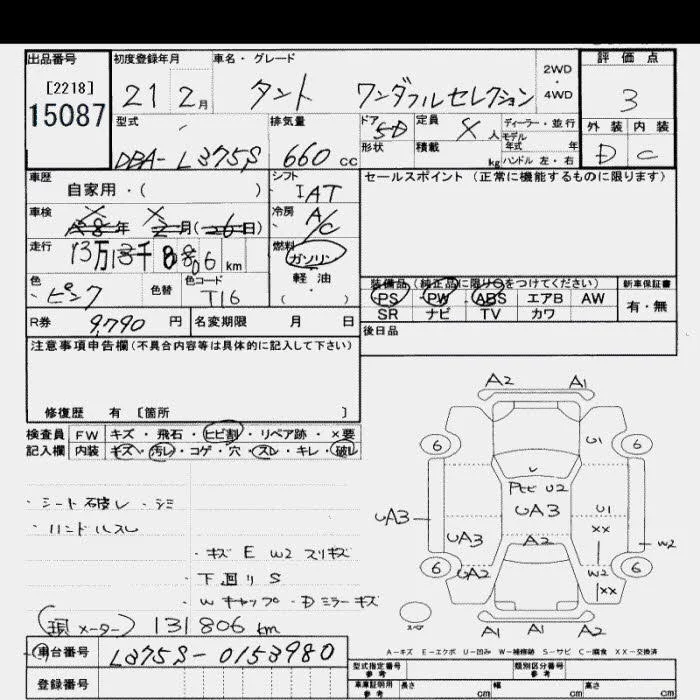 出品番号 初度登録年月 車名・グレード 2WD・4WD 評価点
[2218]
15087
21 2月 タント ワンダフルセレクション 3
型式 排気量 ドア 定員 人 ディーラー・並行 外装 内装
モデル年式 年
DBA-L375S 660cc 5D 形状 積載 kg ハンドル 左・右 D C
車歴 シフト セールスポイント(正常に機能するものに限ります)
自家用・( ) IAT
車検 年 月( 日) 冷房 A/C
走行 13万 千 806 km 燃料 ガソリン
軽油
・( )
色 色替 色コード 装備品(純正品に限り○をつけてください) 新車保証書
・ピンク T16 PS PW ABS エアB AW 有・無
SR ナビ TV カワ
R券 9,790円 名変期限 月 日 後日品
注意事項申告欄(不具合内容等は具体的に記入して下さい)
修復歴 有 [箇所 ]
検査員 FW キズ・飛石・ヒビ割・リペア跡・×要
記入欄 内装 キズ・汚レ・コゲ・穴・スレ・キレ・破レ
A2 A1
6 U1 6
U
Fヒビ U2
UA3 UA3 U1
XX
UA3 A2 W2
6 UA2 W2 6
XX
A1 A1 A2
・シート破レ・シミ
・ハンドルスレ
・キズ E W2 スリキズ
・下回リ S
・Wキャップ・Dミラーキズ
(現メーター) 131806 km
A-キズ E-エクボ U-凹み W-補修跡 S-サビ C-腐食 XX-交換済
車台番号 L375S-0153980
型式指定番号 参考 類別区分番号 参考
登録番号 車庫証明用 参考 長さ cm 幅 cm 高さ cm